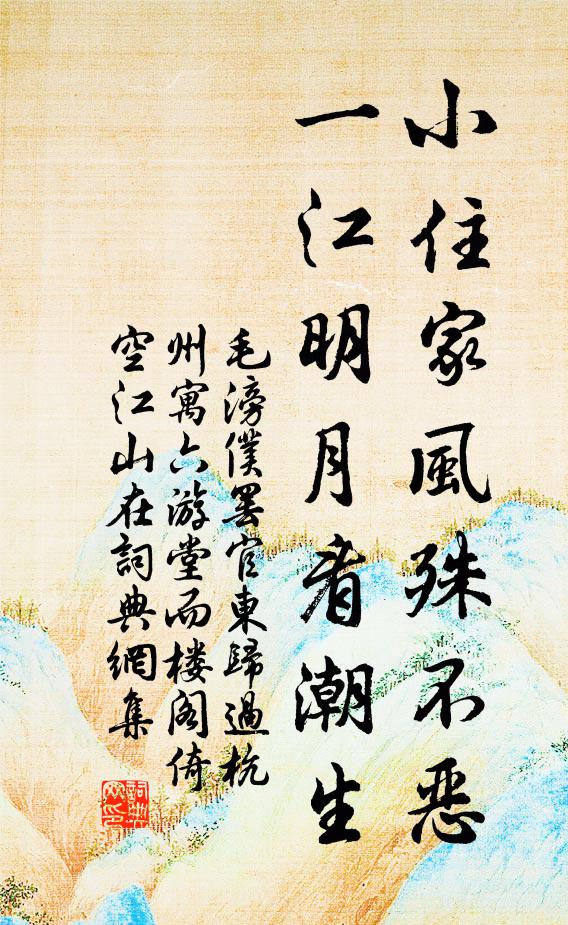 小住家風殊不惡
一江明月看潮生
毛滂僕罢官東歸過杭
州寓六游堂而楼阁倚
空江山在詞典網集